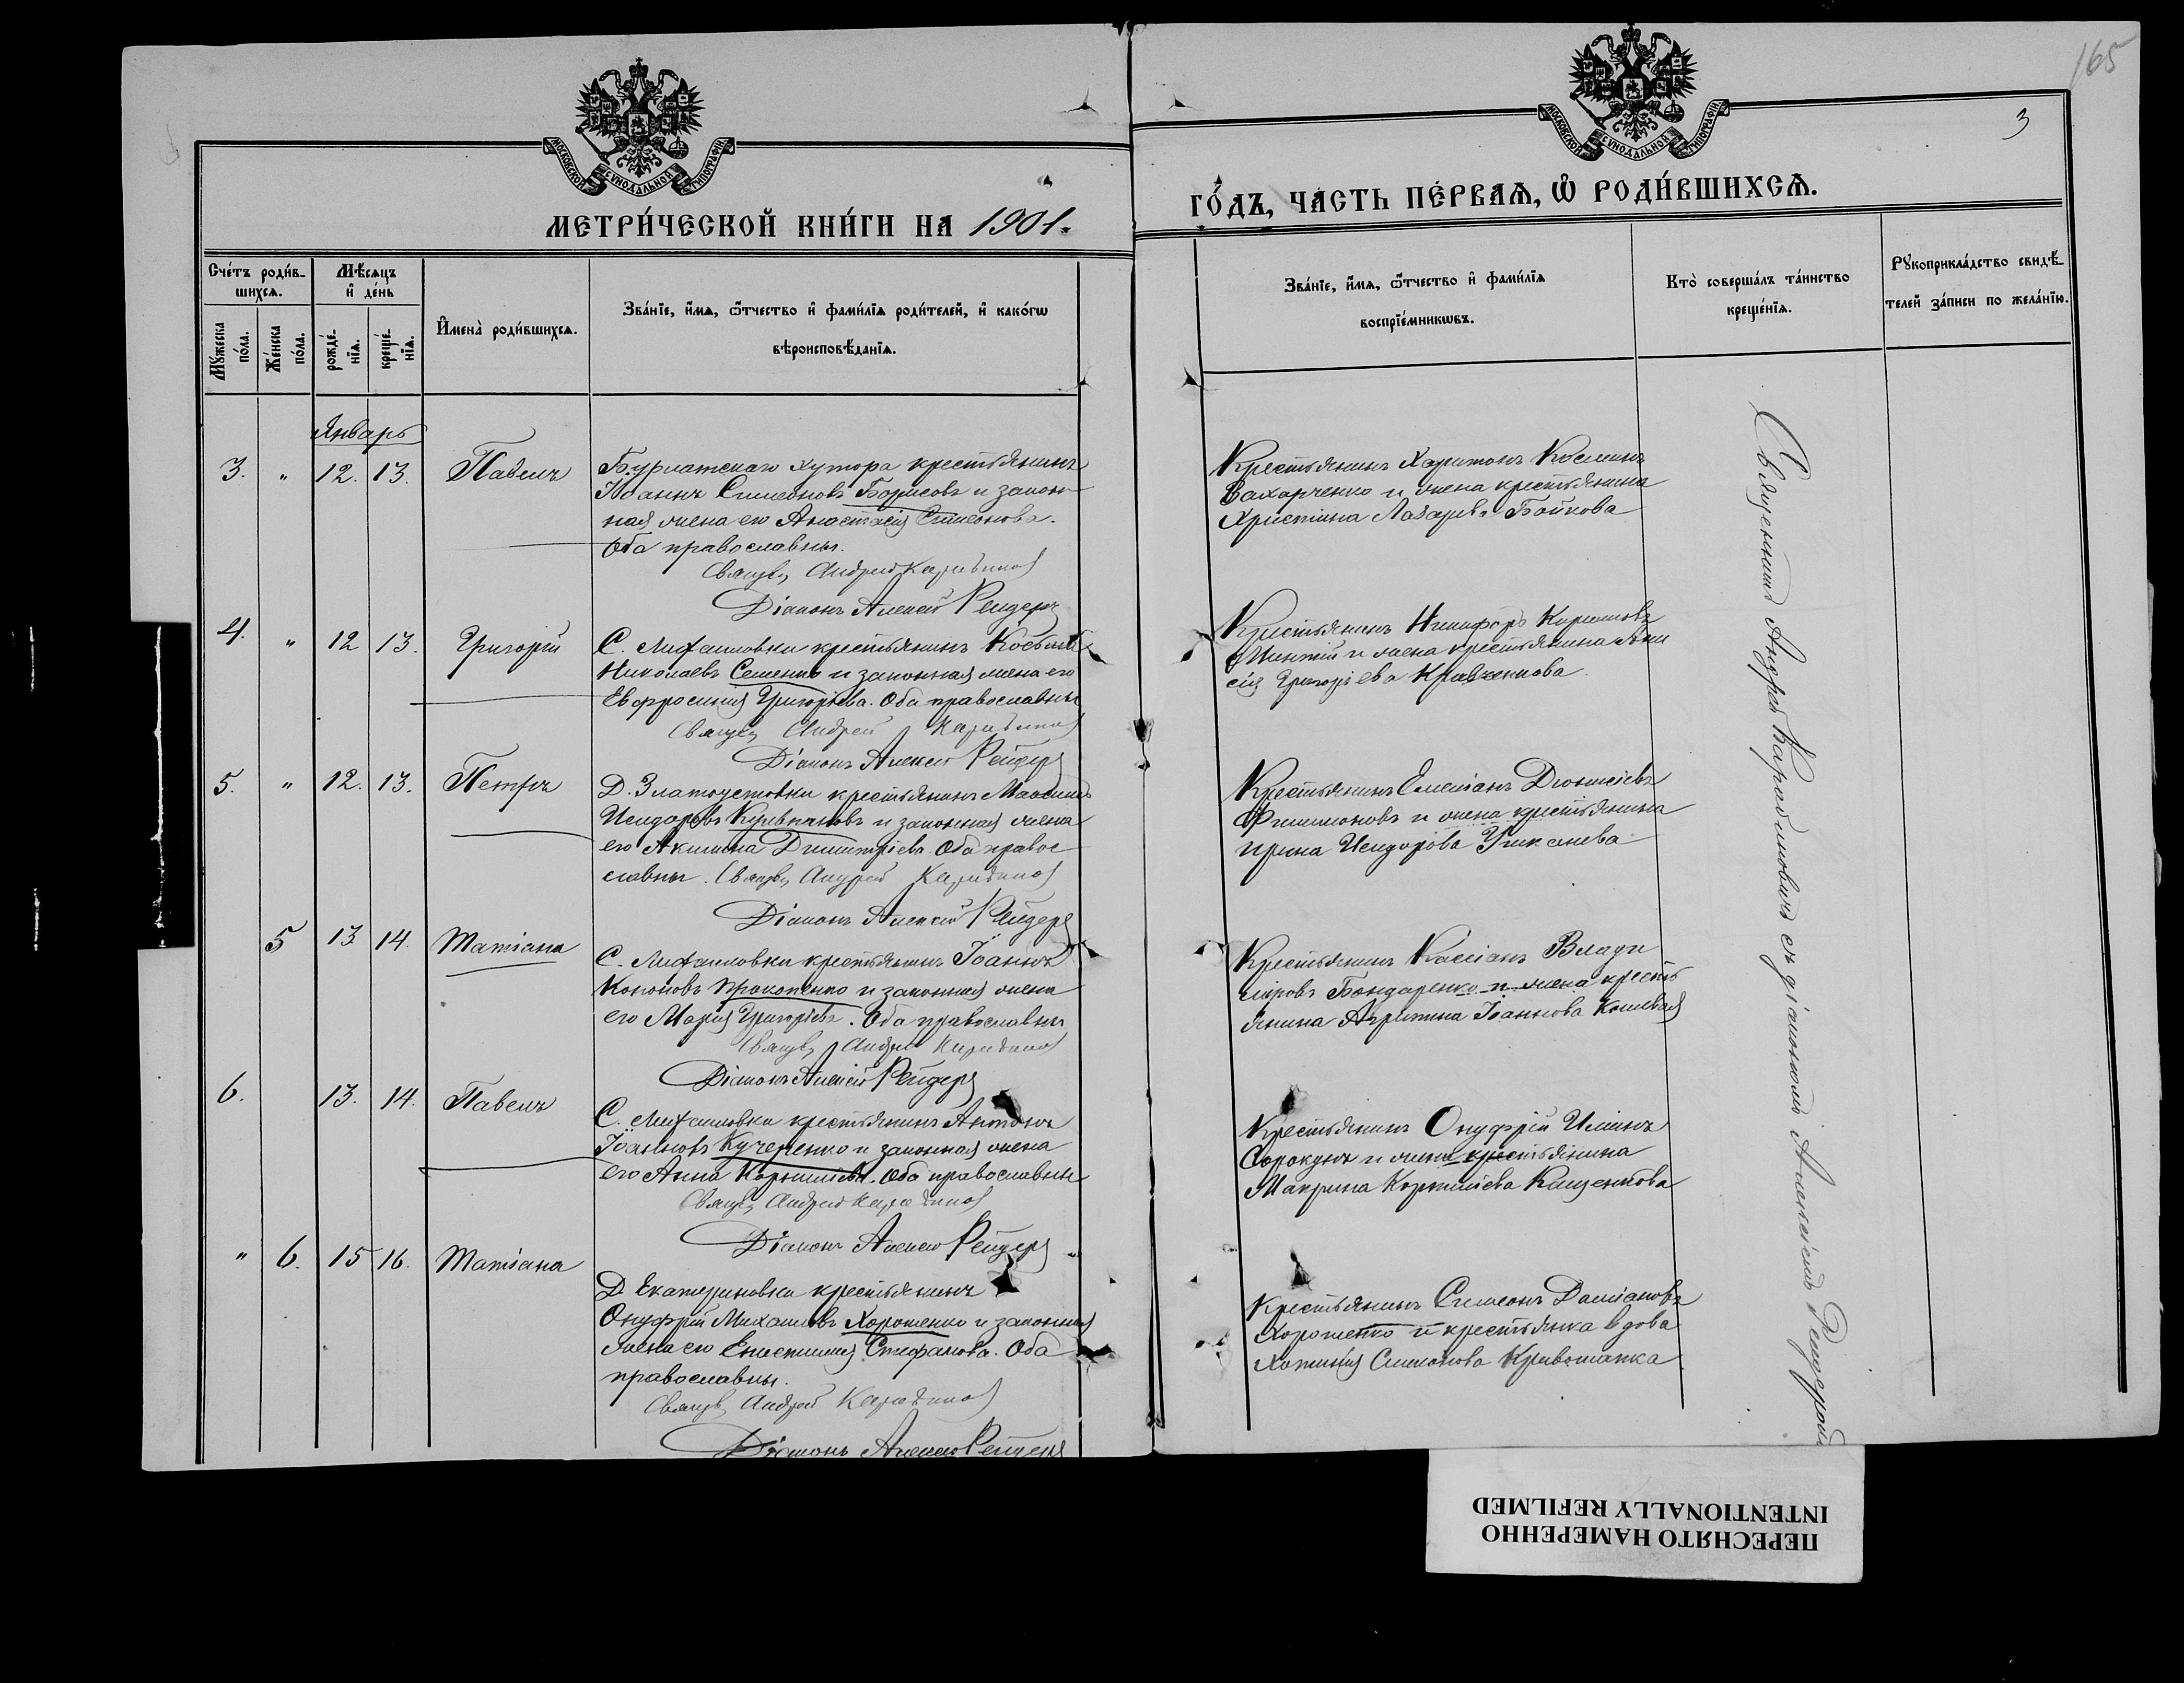 165
3
МОСКОВСКОЙ СѴНОДАЛЬНОЙ ТИПОГРАФІИ
МОСКОВСКОЙ СѴНОДАЛЬНОЙ ТИПОГРАФІИ
МЕТРИ́ЧЕСКОЙ КНИ́ГИ НА 1901.
ГО́ДЪ, ЧА́СТЬ ПЕ́РВАѦ, Ѡ҆ РОДИ́ВШИХСѦ.
Сче́тъ роди́в-
шихсѧ.
Мѣ́сѧцъ
и҆ де́нь
Мꙋ́жеска
по́ла.
Же́нска
по́ла.
рожде́-
нїѧ.
креще́-
нїѧ.
И҆мена̀ роди́вшихсѧ.
Зва́нїе, и҆́мѧ, ѻ҆́тчество и҆ фами́лїѧ роди́телей, и҆ како́гѡ
вѣроисповѣ́данїѧ.
Зва́нїе, и҆́мѧ, ѻ҆́тчество и҆ фами́лїѧ
воспрїе́мникѡвъ.
Кто̀ соверша́лъ та́инство
креще́нїѧ.
Рꙋкоприкла́дство свидѣ́-
телей за́писи по жела́нїю.
Январь
3. " 12. 13. Павелъ
Бурлатскаго хутора крестьянинъ
Іоаннъ Симеоновъ Борисовъ и закон-
ная жена его Анастасія Симеонова.
Оба православны.
Священ. Андрей Карабиновъ
Діаконъ Алексій Рейдеръ
Крестьянинъ Харитонъ Косминъ
Захарченко и жена крестьянина
Христина Лазарева Бойкова
4. " 12 13. Григорій
С. Михаиловки крестьянинъ
Николаевъ Семенко и законная жена его
Евфросинія Григорьева. Оба православны
Священ. Андрей Карабиновъ
Діаконъ Алексій Рейдеръ
Крестьянинъ Никифоръ
и жена крестьянина
сія Григорьева Кравченкова
5. " 12. 13. Петръ
Д. Златоустовки крестьянинъ Максимъ
Исидоровъ и законная жена
его Акилина Димитріева. Оба право-
славны. Священ. Андрей Карабиновъ
Діаконъ Алексій Рейдеръ
Крестьянинъ Емеліанъ Діонисіевъ
Филимоновъ и жена крестьянина
Ирина Исидорова
5 13 14. Татіана
С. Михаиловки крестьянинъ Іоаннъ
Кононовъ Прокопенко и законная жена
его Марія Григорьева. Оба православны
Священ. Андрей Карабиновъ
Діаконъ Алексій Рейдеръ
Крестьянинъ Кассіанъ Влади
міровъ Бондаренко и жена кресть
янина Агрипина Іоаннова Кошевая
6. 13. 14. Павелъ
С. Михаиловки крестьянинъ Антонъ
Іоанновъ Кучеренко и законная жена
его Анна Корнилієва. Оба православны
Священ. Андрей Карабиновъ
Діаконъ Алексій Рейдеръ
Крестьянинъ Онуфрій Иліинъ
Сорокунъ и жена крестьянина
Макрина Корниліева
" 6. 15 16. Татіана
Д. Екатериновки крестьянинъ
Онуфрій Михаиловъ Хорошенко и законная
жена его Стефанова. Оба
православны.
Священ. Андрей Карабиновъ
Діаконъ Алексій Рейдеръ
Крестьянинъ Симеонъ Даміановъ
Хорошенко и крестьянка вдова
Симеонова Кривошапка
Священникъ Андрей Карабиновичъ съ діакономъ Алексіемъ Рейдеромъ
ПЕРЕСНЯТО НАМЕРЕННО
INTENTIONALLY REFILMED